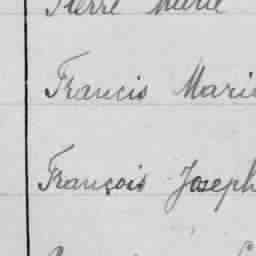 Pierre Marie
Francis Marie
François Joseph